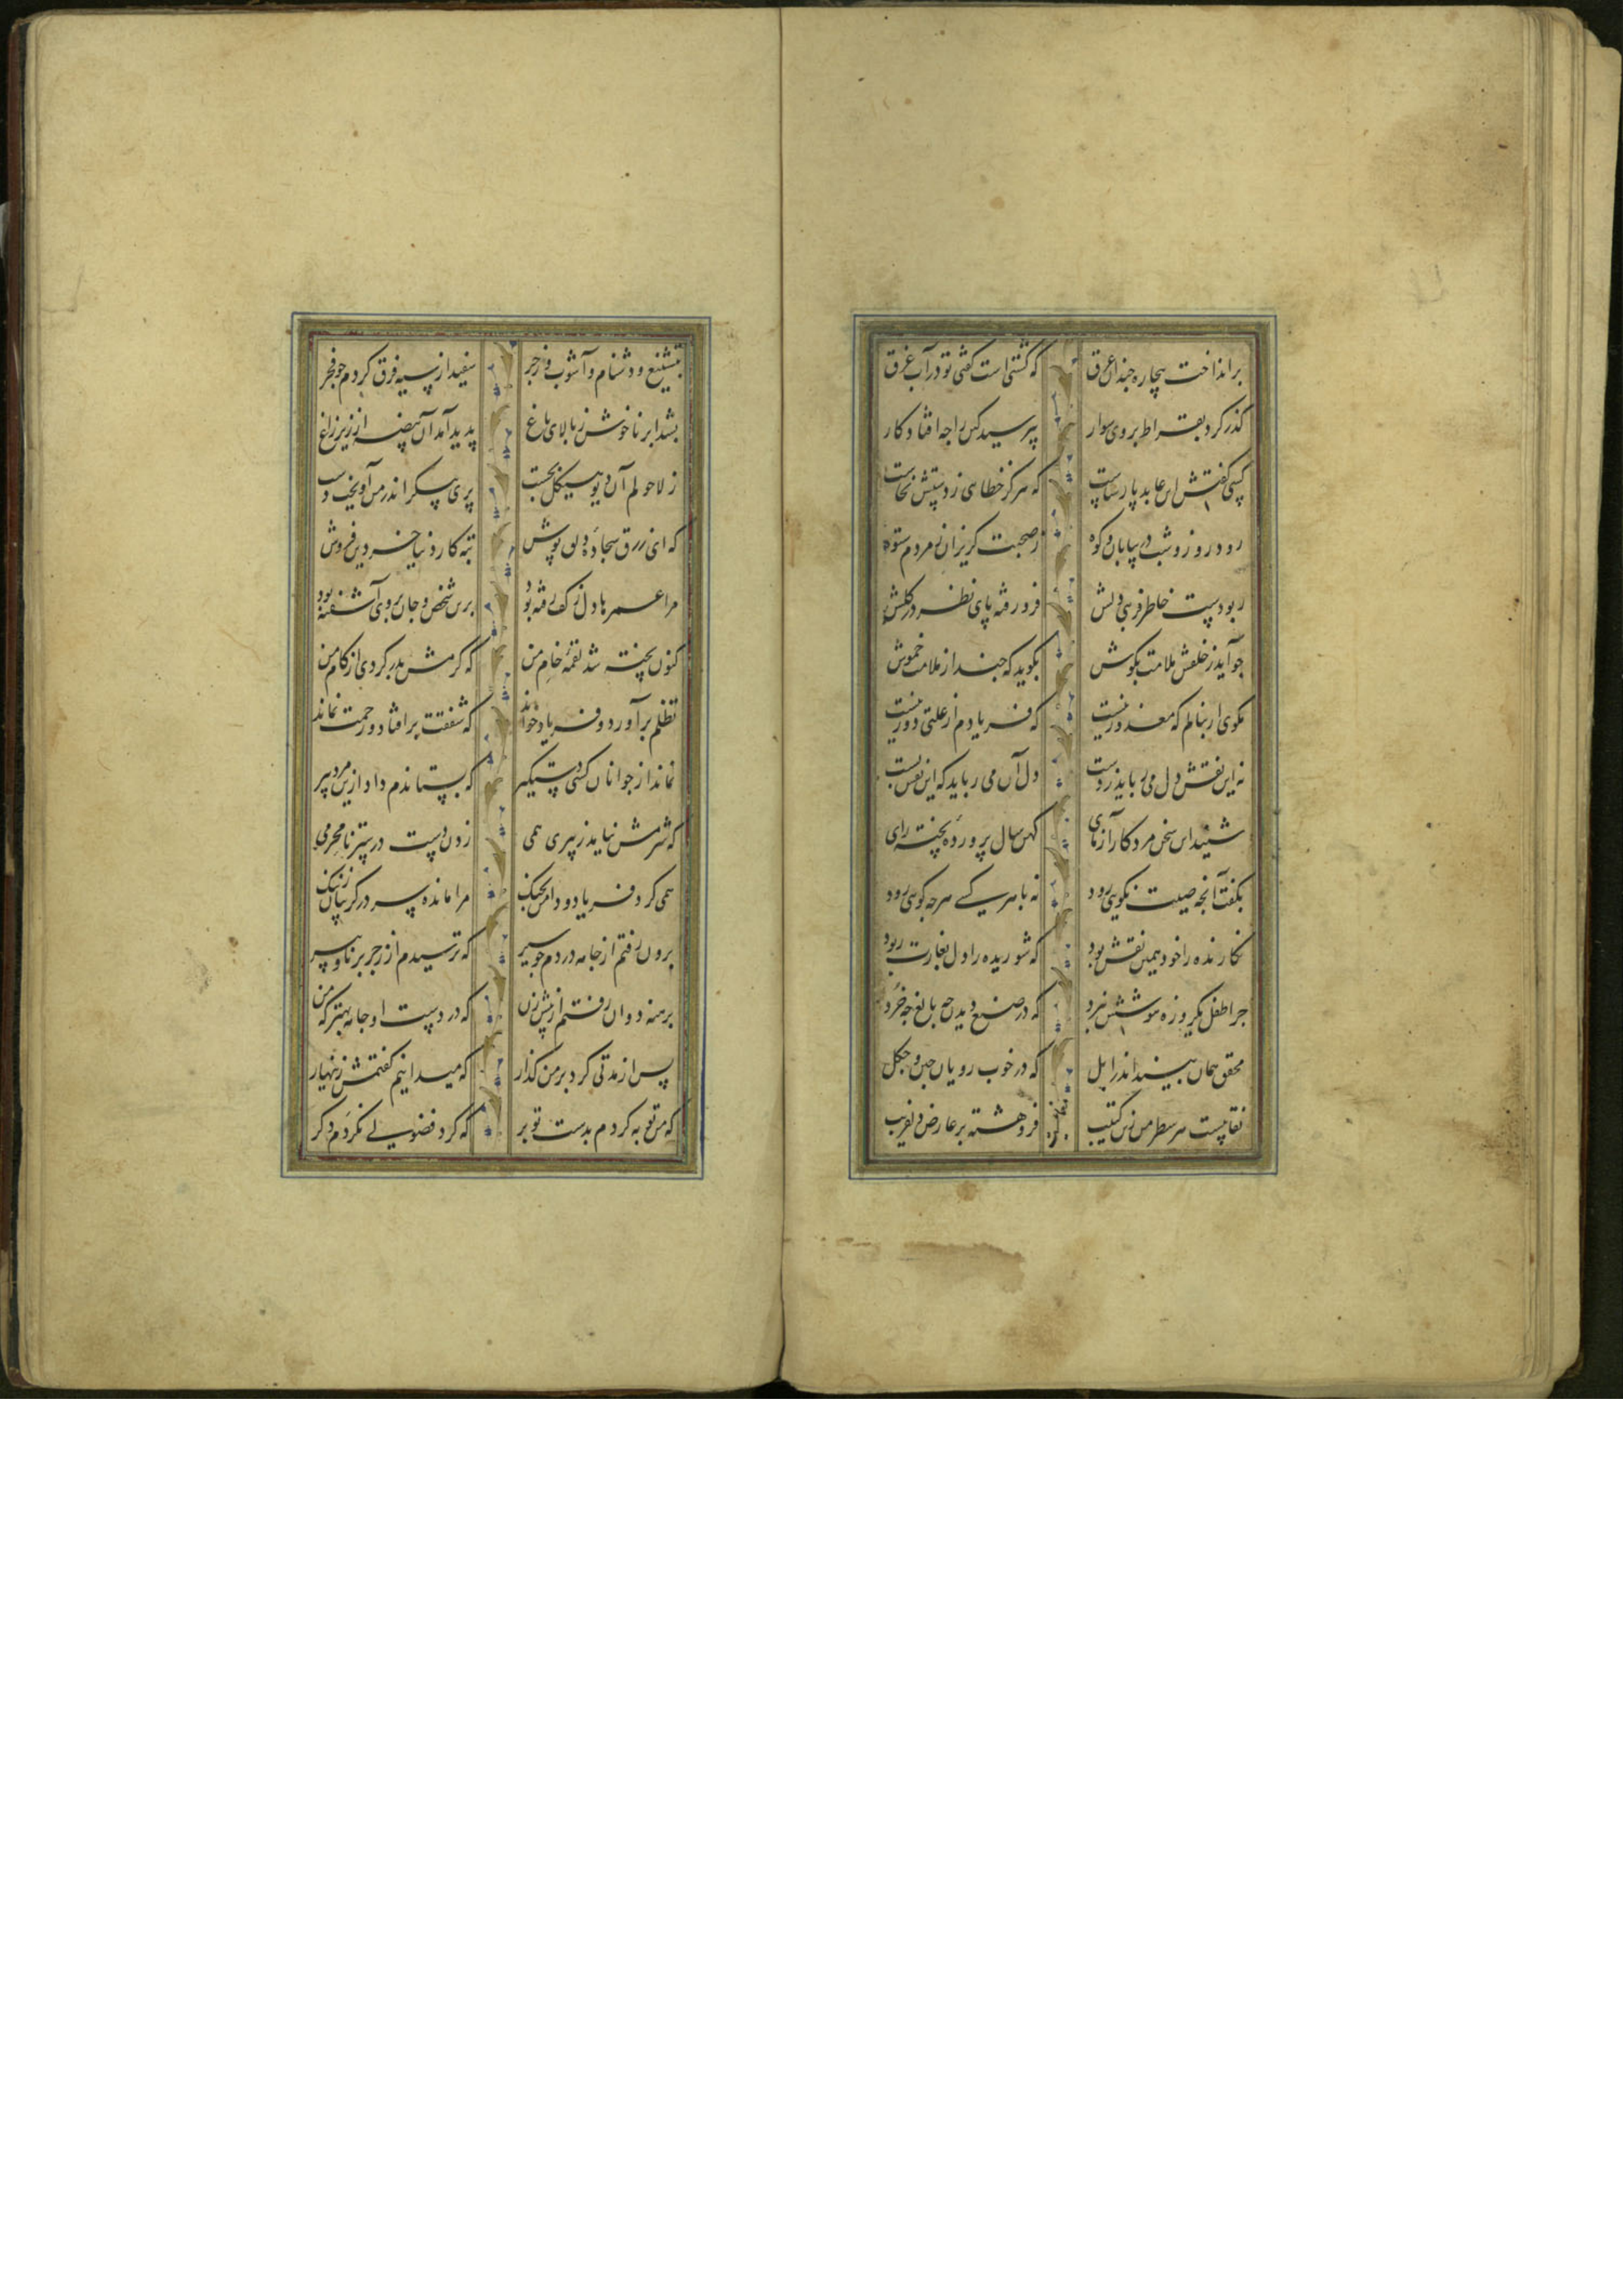 برانداخت بیچاره چندان عرق که گشتی است گفتی تو در آب غرق
گذر کرد بقراط بر وی سوار بپرسید کین را چه افتاد کار
کسی گفتش این عابد پارساست که هرگز خطایی ز دستش نخاست
رود روز و شب در بیابان و کوه ز صحبت گریزان ز مردم ستوه
ربودست خاطر فریبی دلش فرو رفته پای نظر در گلش
چو آید ز خلقش ملامت بگوش بگوید که چند از ملامت خموش
مگوی ار بنالم که معذور نیست که فریادم از علتی دور نیست
نه این نقش دل می رباید ز دست دل آن می رباید که این نقش بست
شنید این سخن مرد کار آزمای کهن سال پرورده پخته رای
بگفت آنچه صیت نکویی رود نه با هر کسی هر چه گویی رود
نگارنده را خود همین نقش بود که شوریده را دل بغارت ربود
چرا طفل یکروزه هوشش نبرد که در صنع دیدن چه بالغ چه خرد
محقق همان بیند اندر ابل که در خوب رویان چین و چگل
نقابیست هر سطر من زین کتیب فرو هشته بر عارض دلفریب
بتشنیع و دشنام و آشوب و زجر سفید از سیه فرق کردم چو فجر
بشد ابر ناخوش ز بالای باغ پدید آمد آن بیضه از زیر زاغ
ز لاحولم آن دیو هیکل بجست پری پیکر اندر من آویخت دست
که ای زرق سجاده دلق پوش تبه کار دنیا خر دین فروش
مرا عمرها دل ز کف رفته بود برین شخص و جان بر وی آشفته بود
کنون پخته شد لقمه خام من که گرمش بدر کردی از کام من
تظلم برآورد و فریاد خواند که شفقت برافتاد و رحمت نماند
نماند از جوانان کسی دستگیر که بستاندم داد ازین مرد پیر
که شرمش نیاید ز پیری همی زدن دست در ستر نامحرمی
همی کرد فریاد و دامن بچنگ مرا مانده سر در گریبان ز ننگ
برون رفتم از جامه در دم چو سیر که ترسیدم از زجر برنا و پیر
برهنه دوان رفتم از پیش زن که در دست او جامه بهتر که من
پس از مدتی کرد بر من گذار که میدانیم گفتمش زینهار
که من توبه کردم بدست تو بر که گرد فضولی نگردم دگر